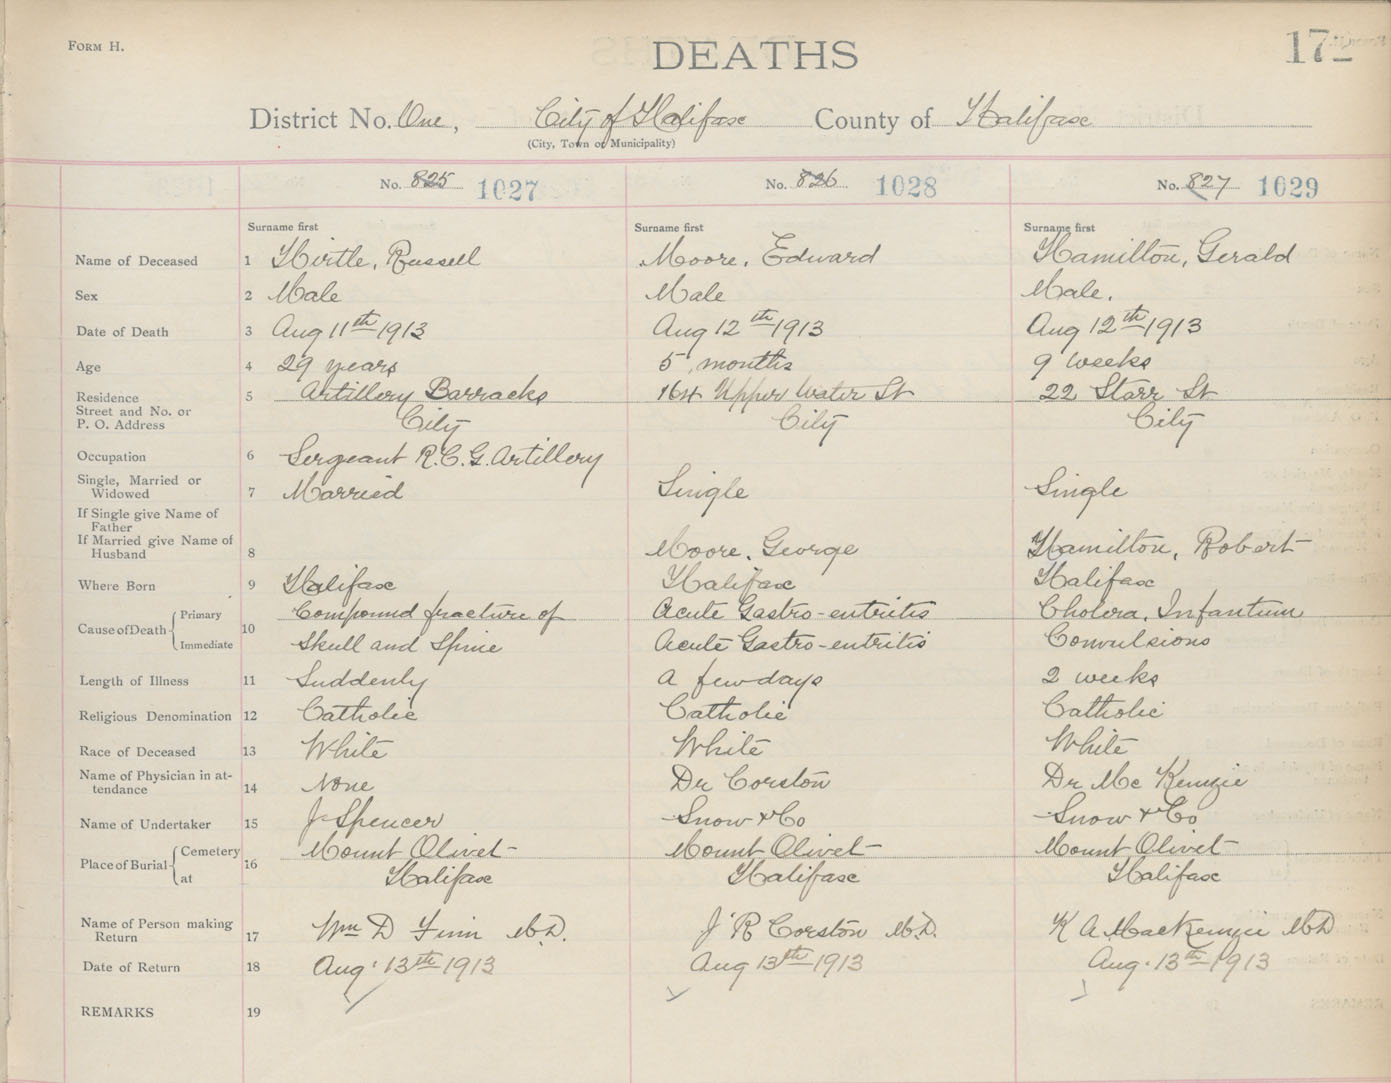 FORM H.
DEATHS
District No. One, City of Halifax County of Halifax
(City, Town or Municipality)
No. 825 1027
No. 826 1028
No. 827 1029
Surname first
Surname first
Surname first
Name of Deceased 1 Hirtle, Russell Moore, Edward Hamilton, Gerald
Sex 2 Male Male Male.
Date of Death 3 Aug 11th 1913 Aug 12th 1913 Aug 12th 1913
Age 4 29 years 5 months 9 weeks
Residence 5 Artillery Barracks 164 Upper Water St 22 Starr St
Street and No. or
P. O. Address City City City
Occupation 6 Sergeant R.C.G. Artillery
Single, Married or
Widowed 7 Married Single Single
If Single give Name of
Father
If Married give Name of
Husband 8 Moore, George Hamilton, Robert
Where Born 9 Halifax Halifax Halifax
Cause of Death 10 Primary Compound fracture of Acute Gastro-entritis Cholora, Infantum
Immediate Skull and Spine Acute Gastro-entritis Convulsions
Length of Illness 11 Suddenly a few days 2 weeks
Religious Denomination 12 Catholic Catholic Catholic
Race of Deceased 13 White White White
Name of Physician in at-
tendance 14 None Dr Corston Dr Mc Kenzie
Name of Undertaker 15 J Spencer Snow & Co Snow & Co
Place of Burial 16 Cemetery Mount Olivet Mount Olivet Mount Olivet
at Halifax Halifax Halifax
Name of Person making
Return 17 Wm D Finn M.D. J R Corston M.D. K A MacKenzie MD
Date of Return 18 Aug. 13th 1913 Aug 13th 1913 Aug. 13th 1913
REMARKS 19